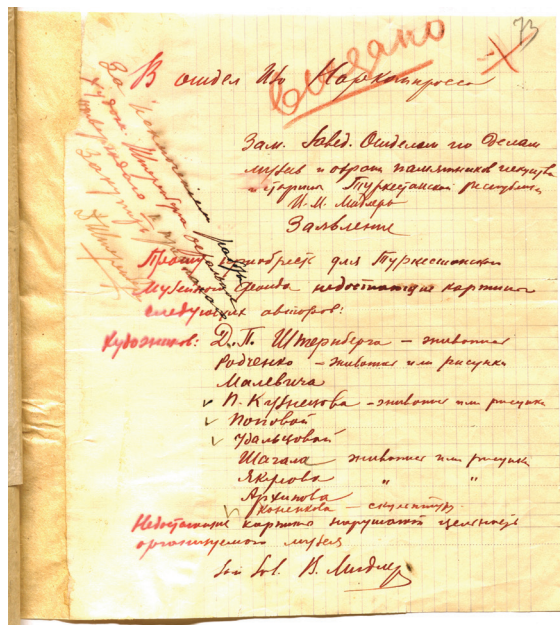 73
выдано
В отдел Изо Наркомпросса
Зам. Завед. Отделом по Делам
музеев и охраны памятников искусства
и старины Туркестанской Республики
Заявление
Прошу приобрести для Туркестанского
Музейного Фонда недостающие картины
следующих авторов:
Художников: Д.П. Штернберга – живопись
Родченко – живопись или рисунки
Малевича
П. Кузнецова – живопись или рисунки
Поповой
Удальцовой
Шагала живопись или рисунки
Якулова " "
Архипова
Коненкова – скульптур.
Недостающие картины нарушают цельность
организуемого музея